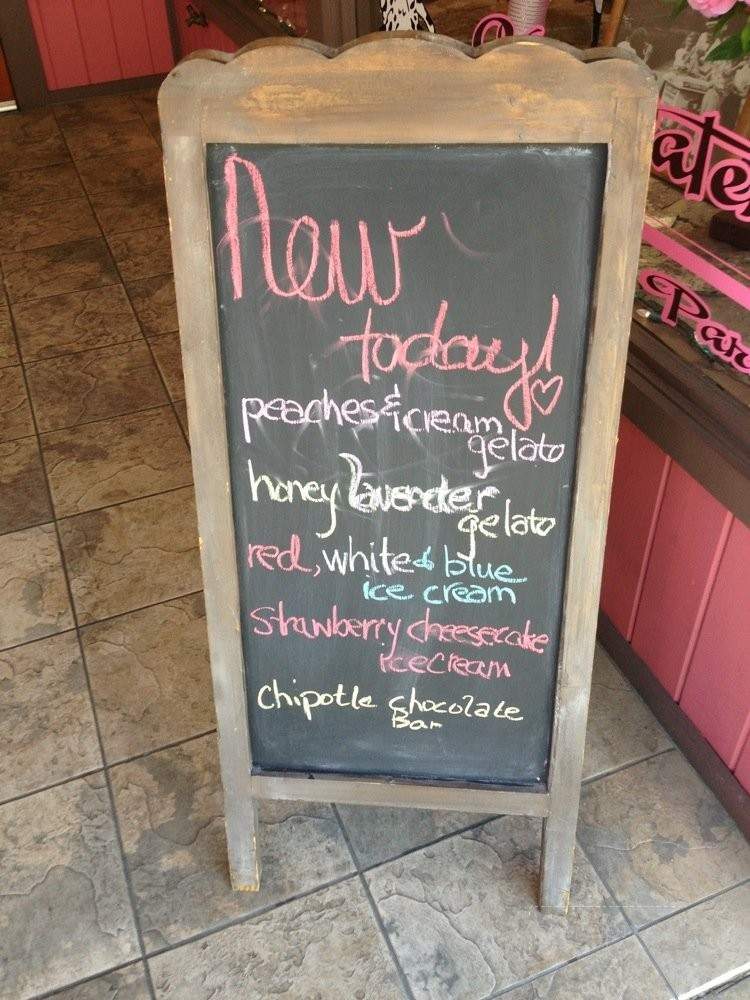 New
today!
peaches & cream
gelato
honey lavender
gelato
red, white & blue
ice cream
Strawberry cheesecake
ice cream
Chipotle chocolate
Bar
Par